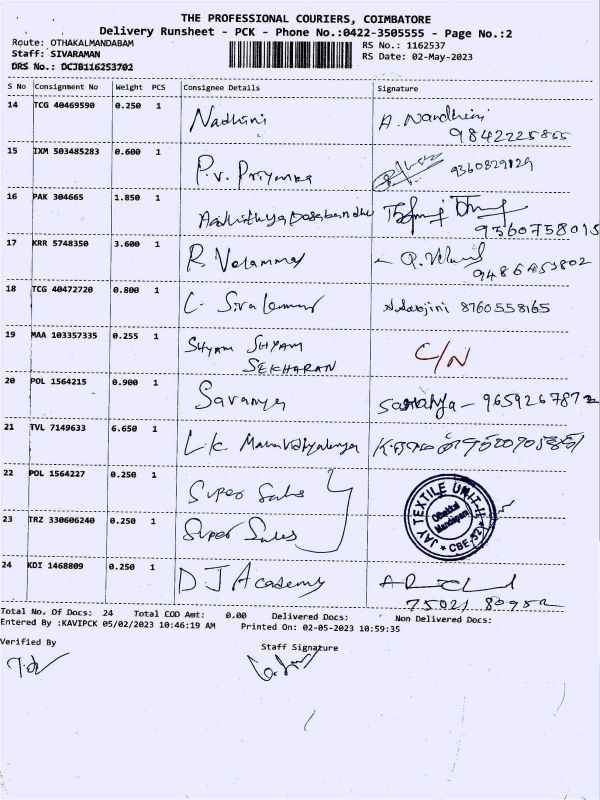 THE PROFESSIONAL COURIERS, COIMBATORE
Delivery Runsheet - PCK - Phone No.:0422-3505555 - Page No.:2
Route: OTHAKALMANDABAM
RS No.: 1162537
Staff: SIVARAMAN
RS Date: 02-May-2023
DRS No.: DCJB116253702
S No Consignment No Weight PCS Consignee Details Signature
14 TCG 40469590 0.250 1 Nadhini A. Nandhini
9842225855
15 IXM 503485283 0.600 1 P.V. Priyanka 9360829129
16 PAK 304665 1.850 1
9360758015
17 KRR 5748350 3.600 1 R Velammal
18 TCG 40472720 0.800 1 8760558165
19 MAA 103357335 0.255 1 SHYAM SHYAM C/N
SEKHARAN
20 POL 1564215 0.900 1 Saranya Saranya -
21 TVL 7149633 6.650 1
22 POL 1564227 0.250 1 Super Sales
JAY TEXTILE UNIT-II
Othakkal
Mandapam
CBE-32
23 TRZ 330606240 0.250 1 Super Sales
24 KDI 1468809 0.250 1 DJ Academy
75021 80952
Total No. Of Docs: 24 Total COD Amt: 0.00 Delivered Docs: Non Delivered Docs:
Entered By :KAVIPCK 05/02/2023 10:46:19 AM Printed On: 02-05-2023 10:59:35
Verified By Staff Signature